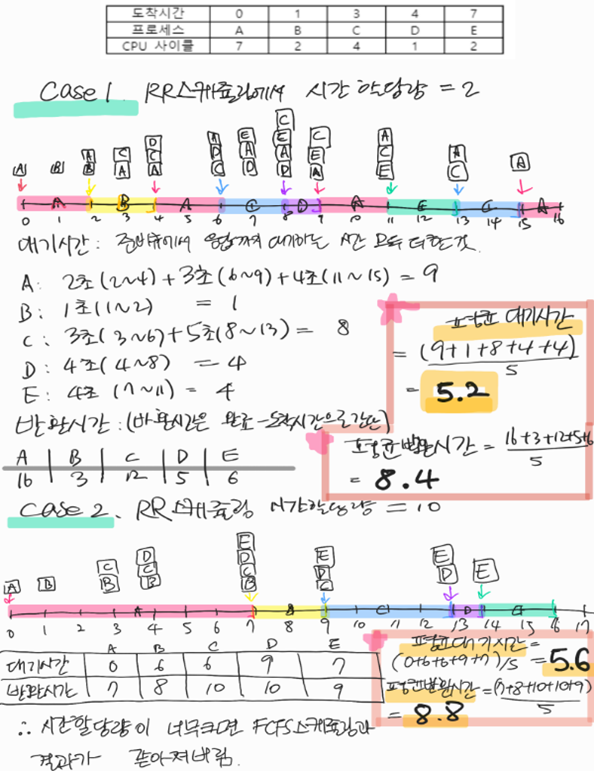 도착시간 0 1 3 4 7
프로세스 A B C D E
CPU 사이클 7 2 4 1 2
Case 1. RR스케쥴링에서 시간 할당량 = 2
A B B A C A D C A A D C E A D C E A D C E A A C E A C A
A B A C D A E C A
0 1 2 3 4 5 6 7 8 9 10 11 12 13 14 15 16
대기시간: 준비큐에서 대기하는 시간 모두 더한것.
A: 2초(2~4) + 3초(6~9) + 4초(11~15) = 9
B: 1초(1~2) = 1
C: 3초(3~6) + 5초(8~13) = 8
D: 4초(4~8) = 4
E: 4초(7~11) = 4
평균 대기시간
= (9+1+8+4+4)
5
= 5.2
반환시간: (반환시간은 완료-도착시간으로 간단)
A B C D E
16 3 12 5 6
평균반환시간 = 16+3+12+5+6
5
= 8.4
Case 2. RR스케쥴링 시간할당량 = 10
A B C B D C B E D C B E D C E D E
A B C D E
0 1 2 3 4 5 6 7 8 9 10 11 12 13 14 15 16 17
A B C D E
대기시간 0 6 6 9 7
반환시간 7 8 10 10 9
평균대기시간=
(0+6+6+9+7)/5 = 5.6
평균반환시간 = (7+8+10+10+9)
5
= 8.8
∴ 시간할당량이 너무크면 FCFS스케쥴링과
결과가 같아져버림.